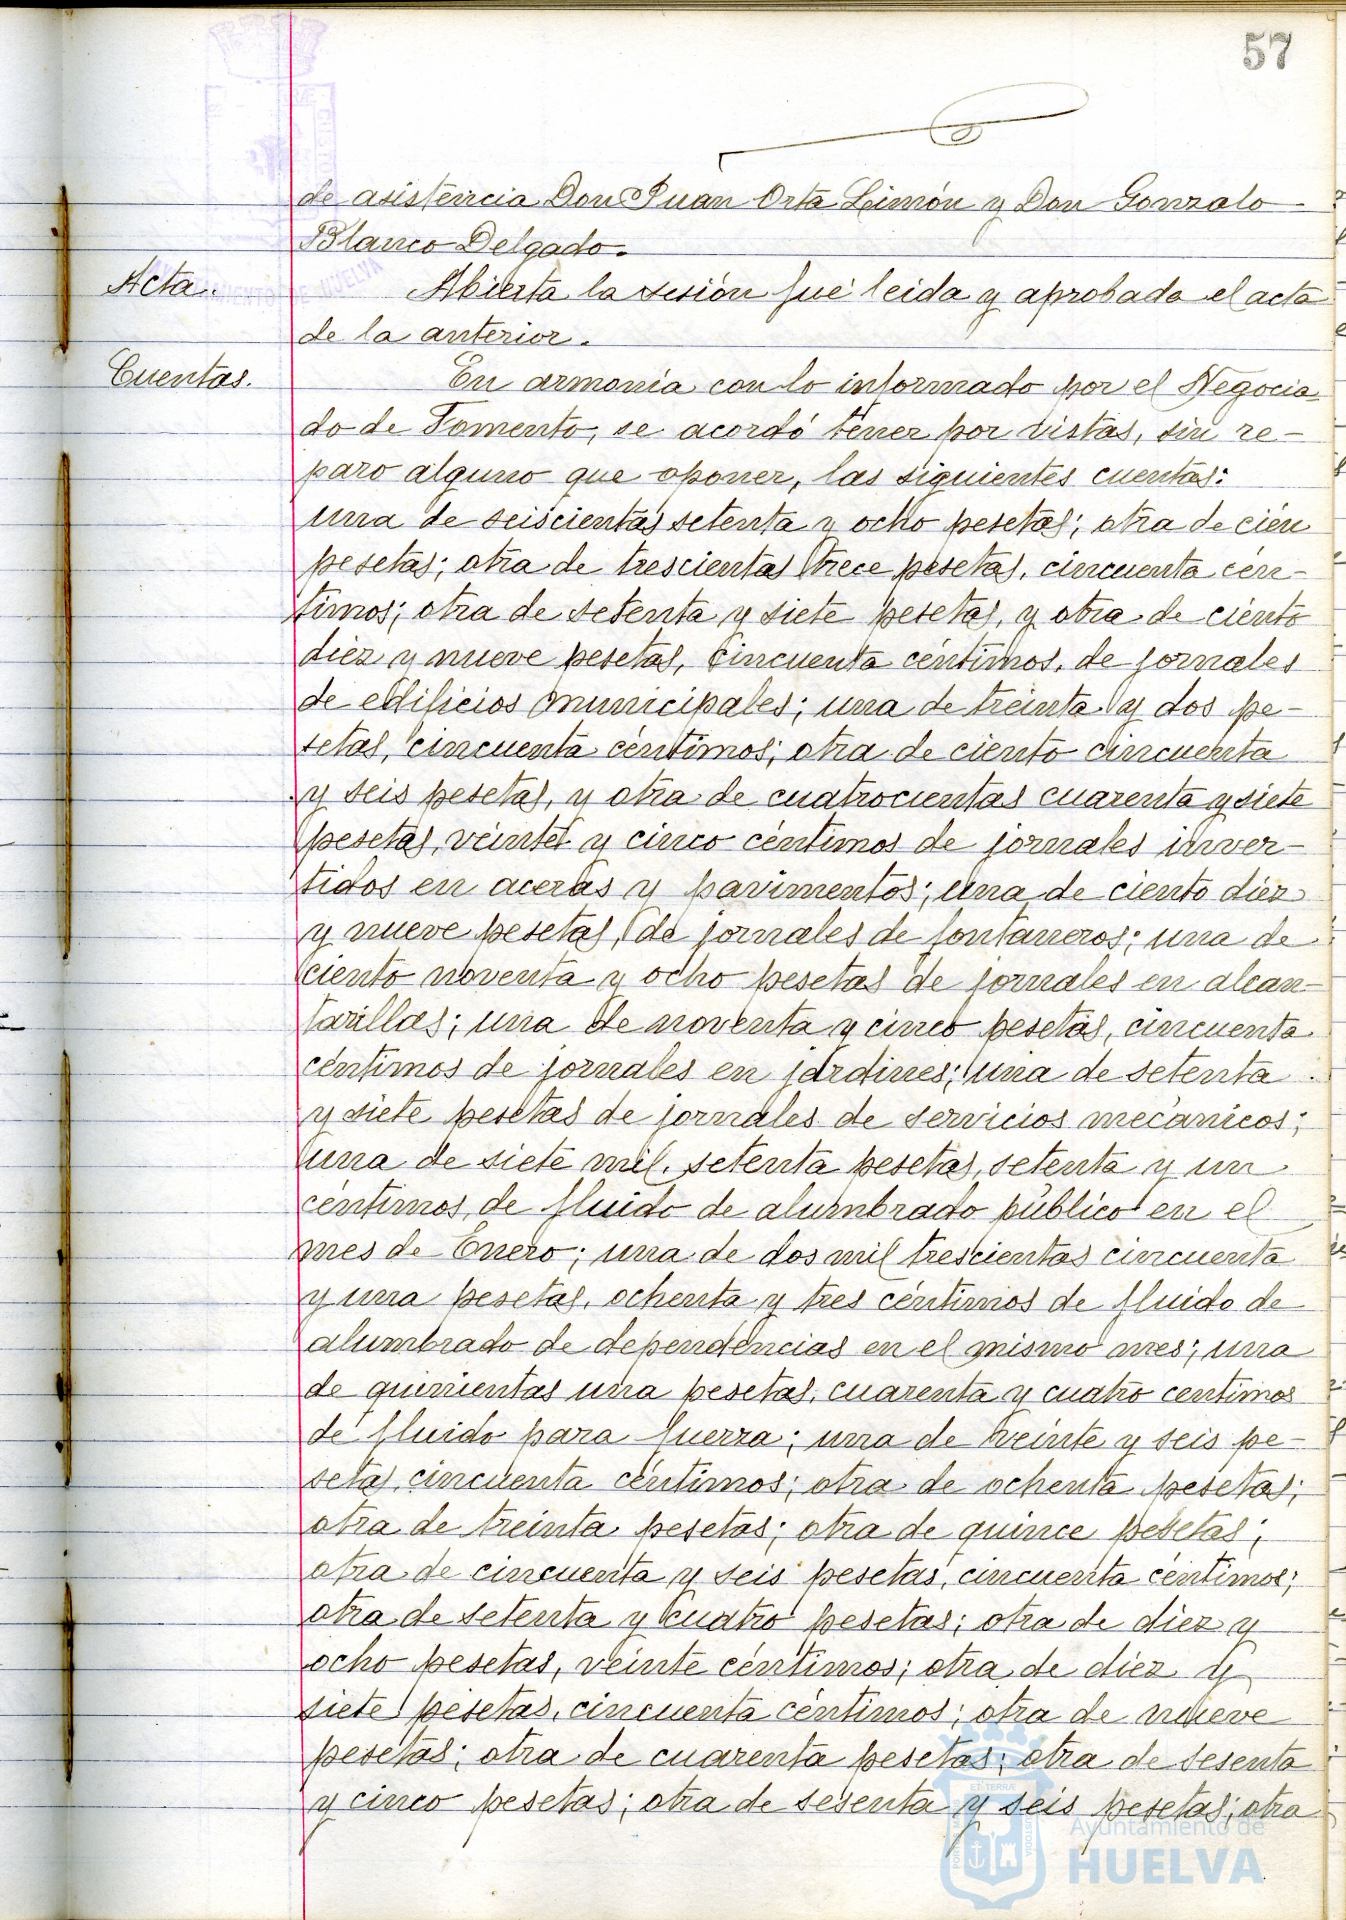 57
de asistencia Don Juan Orta Limón y Don Gonzalo
Blanco Delgado.
Acta. Abierta la sesión fué leida y aprobada el acta
AYUNTAMIENTO DE HUELVA
de la anterior.
Cuentas. En armonía con lo informado por el Negocia-
do de Fomento, se acordó tener por vistas, sin re-
paro alguno que oponer, las siguientes cuentas:
una de seiscientas setenta y ocho pesetas; otra de cién
pesetas; otra de trescientas trece pesetas, cincuenta cén-
timos; otra de setenta y siete pesetas, y otra de ciento
diez y nueve pesetas, cincuenta céntimos, de jornales
de edificios municipales; una de treinta y dos pe-
setas, cincuenta céntimos; otra de ciento cincuenta
y seis pesetas, y otra de cuatrocientas cuarenta y siete
pesetas, veinte y cinco céntimos de jornales inver-
tidos en aceras y pavimentos; una de ciento diez
y nueve pesetas, de jornales de fontaneros; una de
ciento noventa y ocho pesetas de jornales en alcan-
tarillas; una de noventa y cinco pesetas, cincuenta
céntimos de jornales en jardines; una de setenta
y siete pesetas de jornales de servicios mecánicos;
una de siete mil setenta pesetas, setenta y un
céntimos, de fluido de alumbrado público en el
mes de Enero; una de dos mil trescientas cincuenta
y una pesetas, ochenta y tres céntimos de fluido de
alumbrado de dependencias en el mismo mes; una
de quinientas una pesetas, cuarenta y cuatro centimos
de fluido para fuerza; una de veinte y seis pe-
setas, cincuenta céntimos; otra de ochenta pesetas;
otra de treinta pesetas; otra de quince pesetas;
otra de cincuenta y seis pesetas, cincuenta céntimos;
otra de setenta y cuatro pesetas; otra de diez y
ocho pesetas, veinte céntimos; otra de diez y
siete pesetas, cincuenta céntimos; otra de nueve
pesetas; otra de cuarenta pesetas; otra de sesenta
y cinco pesetas; otra de sesenta y seis pesetas; otra
Ayuntamiento de
HUELVA